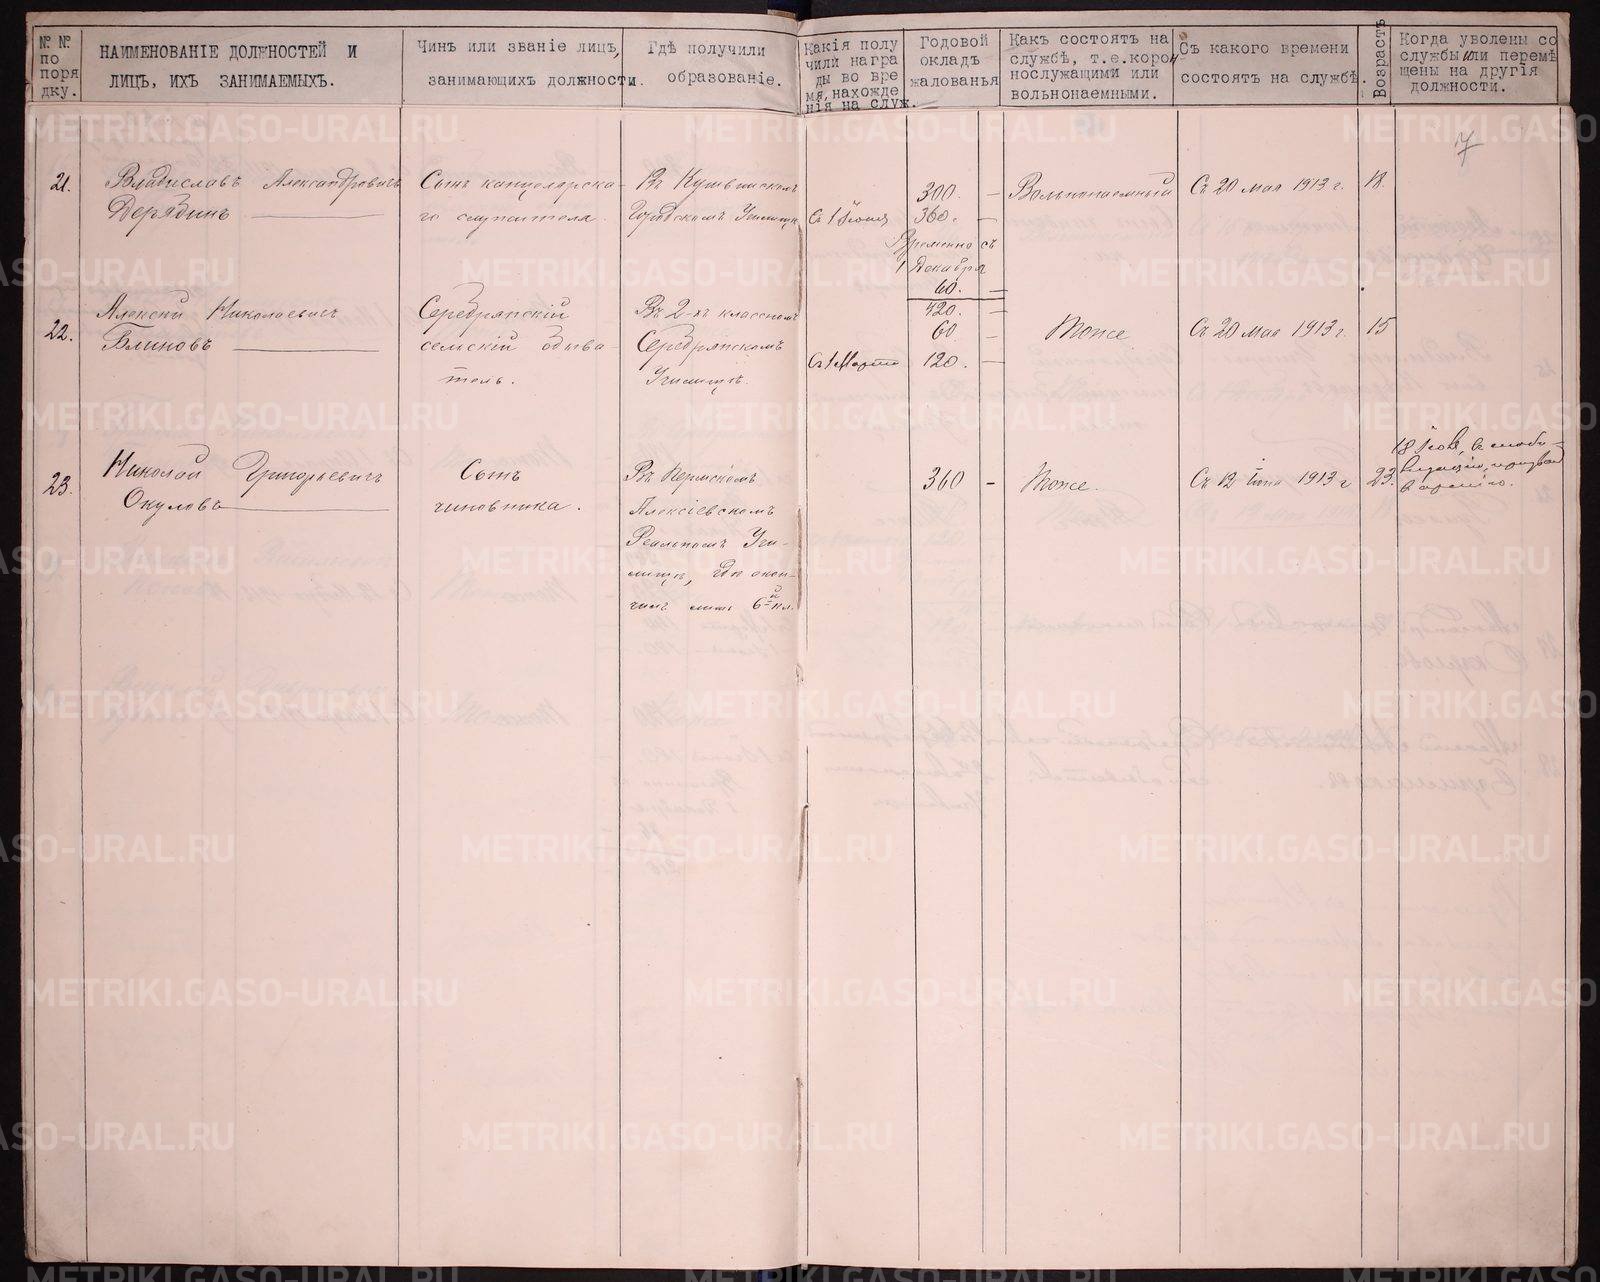 № №
по
поря
дку.
НАИМЕНОВАНІЕ ДОЛЖНОСТЕЙ И
ЛИЦЪ, ИХЪ ЗАНИМАЕМЫХЪ.
Чинъ или званіе лицъ,
занимающихъ должности.
Гдѣ получили
образованіе.
Какія полу
чили награ
ды во вре
мя, нахожде
нія на служ.
Годовой
окладъ
жалованья
Какъ состоятъ на
службѣ, т.е. корон
нослужащими или
вольнонаемными.
Съ какого времени
состоятъ на службѣ.
Возрастъ
Когда уволены со
службы или перемѣ
щены на другія
должности.
7
21.
Владиславъ Александровичъ
Дерябинъ
Сынъ канцелярска-
го служителя.
Въ Кушвинскомъ
Городскомъ Училищѣ
Съ 1 Іюня
300. —
360. —
Временно съ
1 Декабря
60. —
420. —
Вольнонаемный
Съ 20 мая 1913 г.
18.
22.
Алексѣй Николаевичъ
Блиновъ
Серебрянскій
сельскій обыва-
тель.
Въ 2-хъ классномъ
Серебрянскомъ
Училищѣ.
Съ 1 Марта
60 —
120. —
Тоже
Съ 20 мая 1913 г.
15
23.
Николай Григорьевичъ
Окуловъ
Сынъ
чиновника.
Въ Пермскомъ
Алексіевскомъ
Реальномъ Учи-
лищѣ, гдѣ окон-
чилъ лишь 6-й кл.
360 —
Тоже.
Съ 12 Іюня 1913 г
23.
18 Іюля, по моби-
лизаціи, призванъ
въ армію.
METRIKI.GASO-URAL.RU